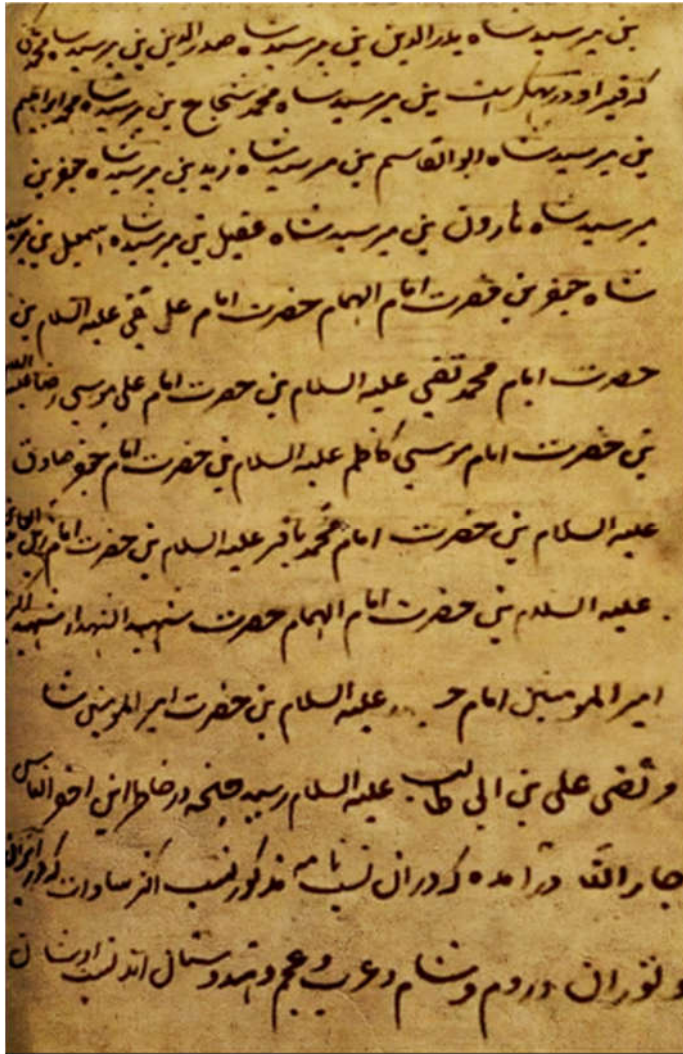 بن میر سید شاه بدرالدین بن میر سید شاه صدرالدین بن میر سید شاه محمد
که قبر او در است بن میر سید شاه محمد شجاع بن میر سید شاه محمد ابراهیم
بن میر سید شاه ابوالقاسم بن میر سید شاه زید بن میر سید شاه جعفر بن
میر سید شاه هارون بن میر سید شاه عقیل بن میر سید شاه اسمعیل بن میر سید
شاه جعفر بن حضرت امام الهمام حضرت امام علی نقی علیه السلام بن
حضرت امام محمد تقی علیه السلام بن حضرت امام علی موسی رضا علیه السلام
بن حضرت امام موسی کاظم علیه السلام بن حضرت امام جعفر صادق
علیه السلام بن حضرت امام محمد باقر علیه السلام بن حضرت امام
علیه السلام بن حضرت امام الهمام حضرت شهید الشهدا
امیر المومنین امام علیه السلام بن حضرت امیر المومنین شا
مرتضی علی بن ابی طالب علیه السلام رسید چنانچه در خاطر این
در آمده که در ان نسب نامه مذکور نسب اکثر سادات که در ایران
و توران و روم و شام و عرب و عجم و هندوستان اند نسب ایشان